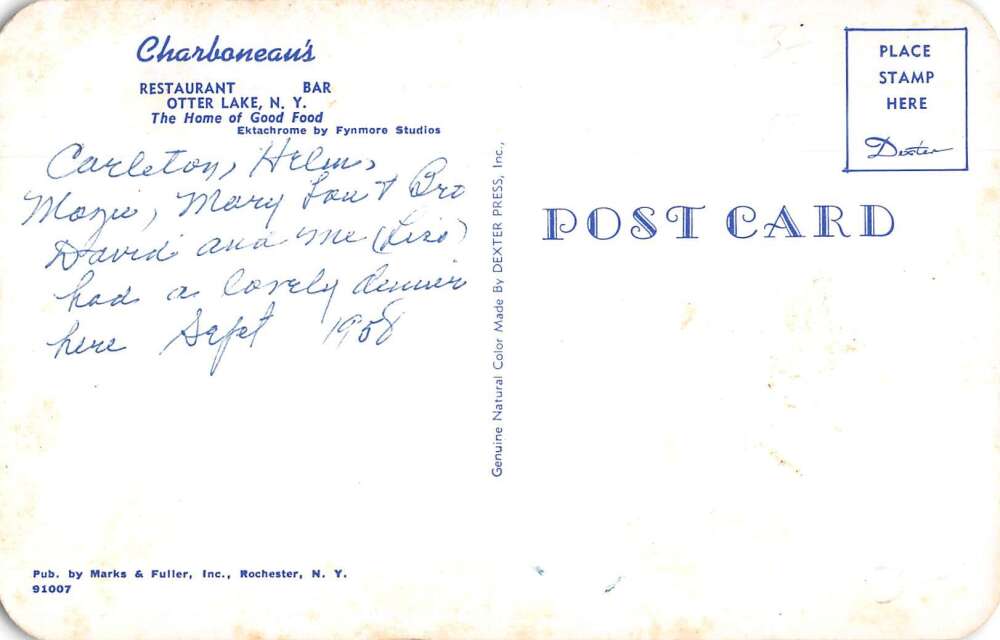 Charboneau's
RESTAURANT BAR
OTTER LAKE, N. Y.
The Home of Good Food
Ektachrome by Fynmore Studios
Carleton, Helen,
Mazie, Mary Lou & Bro
David and me (Lizo)
had a lovely dinner
here Sept 1958
Pub. by Marks & Fuller, Inc., Rochester, N. Y.
91007
Genuine Natural Color Made By DEXTER PRESS, Inc.,
PLACE
STAMP
HERE
Dexter
POST CARD